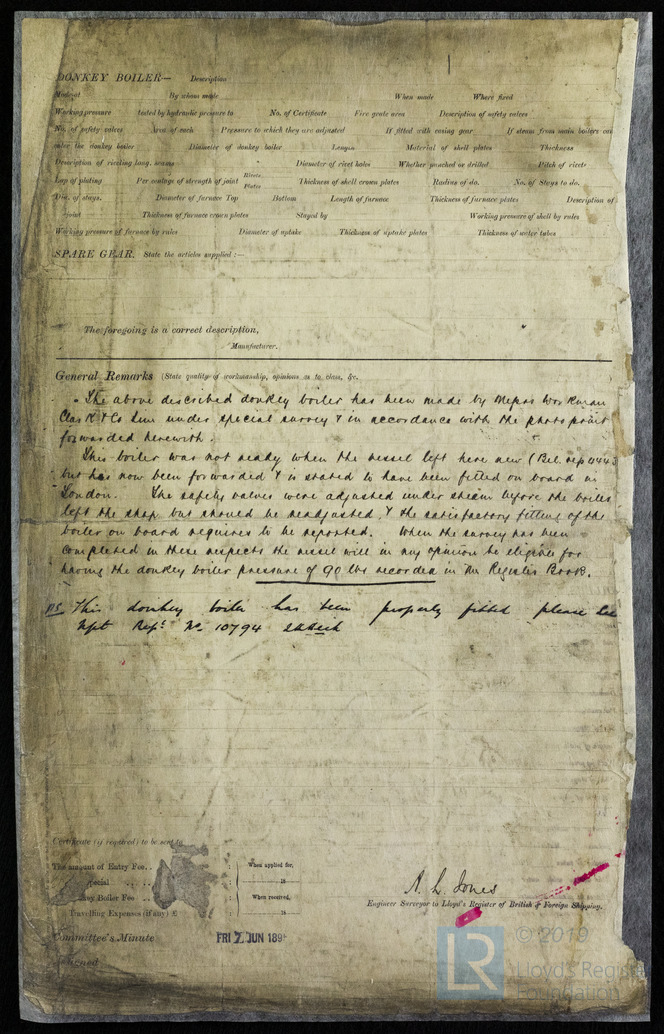 DONKEY BOILER— Description
Made at By whom made When made Where fixed
Working pressure tested by hydraulic pressure to No. of Certificate Fire grate area Description of safety valves
No. of safety valves Area of each Pressure to which they are adjusted If fitted with easing gear If steam from main boilers can
enter the donkey boiler Diameter of donkey boiler Length Material of shell plates Thickness
Description of riveting long. seams Diameter of rivet holes Whether punched or drilled Pitch of rivets
Lap of plating Per centage of strength of joint Rivets Plates Thickness of shell crown plates Radius of do. No. of Stays to do.
Dia. of stays. Diameter of furnace Top Bottom Length of furnace Thickness of furnace plates Description of
joint Thickness of furnace crown plates Stayed by Working pressure of shell by rules
Working pressure of furnace by rules Diameter of uptake Thickness of uptake plates Thickness of water tubes
SPARE GEAR. State the articles supplied :—
The foregoing is a correct description,
Manufacturer.
General Remarks (State quality of workmanship, opinions as to class, &c.
The above described donkey boiler has been made by Messrs Workman
Clark & Co Lim under special survey & in accordance with the photo print
forwarded herewith.
This boiler was not ready when the vessel left here new (Bel. rep 4443
but has now been forwarded & is stated to have been fitted on board in
London. The safety valves were adjusted under steam before the boiler
left the shop but should be readjusted, & the satisfactory fitting of the
boiler on board requires to be reported. When the survey has been
completed in these respects the vessel will in my opinion be eligible for
having the donkey boiler pressure of 90 lbs recorded in the Register Book.
This donkey boiler has been properly fitted please see
Npt Rept No 10794
Certificate (if required) to be sent to
The amount of Entry Fee.. When applied for,
Special 18
Donkey Boiler Fee When received,
Travelling Expenses (if any) £ 18
A. L. Jones
Engineer Surveyor to Lloyd's Register of British & Foreign Shipping.
Committee's Minute FRI 7 JUN 189
© 2019
LR Lloyd's Register
Foundation